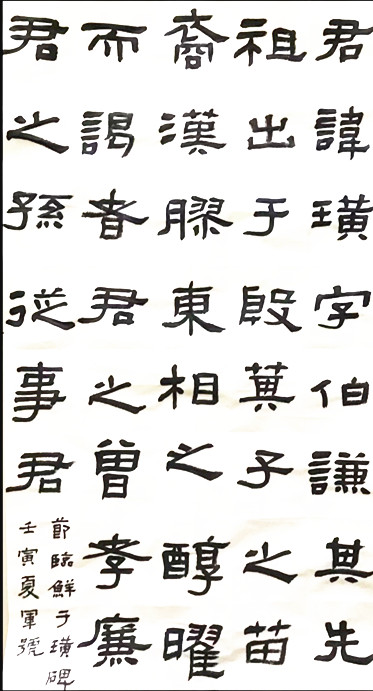 君諱璜字伯謙其先
祖出于殷萁子之苗
裔漢膠東相之醇曜
而謁者君之曾孝廉
君之孫從事君
節臨鮮于璜碑
壬寅夏軍號